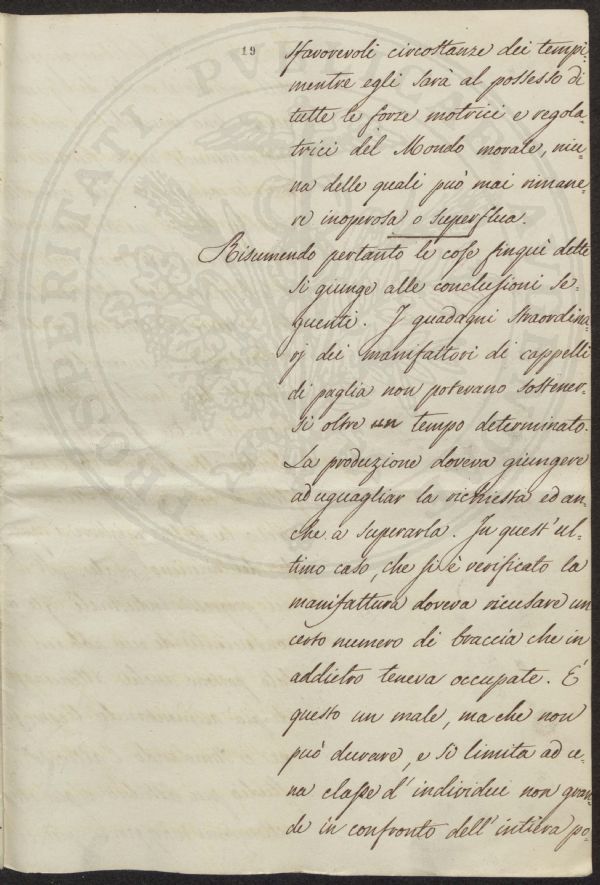 19
sfavorevoli circostanze dei tempi-
mentre egli sarà al possesso di
tutte le forze motrici e regola=
trici del Mondo morale, niu=
na delle quali può mai rimane=
re inoperosa o superflua.
Risumendo pertanto le cose finquì dette
si giunge alle conclusioni se=
guenti. I guadagni straordina=
rj dei manifattori di cappelli
di paglia non potevano sostener=
si oltre un tempo determinato.
La produzione doveva giungere
ad uguagliar la richiesta ed an=
che a superarla. In quest'ul=
timo caso, che si è verificato la
manifattura doveva ricusare un
certo numero di braccia che in
addietro teneva occupate. E'
questo un male, ma che non
può durare, e si limita ad u=
na classe d'individui non gran=
de in confronto dell'intiera po=
PROSPERITATI PVBLICAE